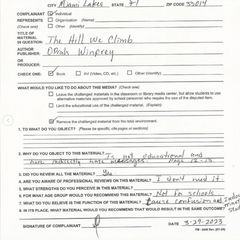 CITY Miami Lakes STATE Fl ZIP CODE 33014
COMPLAINANT Individual
REPRESENTS Organization (Name)
Other (Identify)
TITLE OF
MATERIAL
IN QUESTION: The Hill We Climb
AUTHOR/
PUBLISHER: Oprah Winfrey
OR
PRODUCER:
CHECK ONE: Book Kit (Video, CD, etc.) Other (Identify)
WHAT WOULD YOU LIKE TO DO ABOUT THE MEDIA? (Check one)
Leave the challenged materials in the classroom or library media center, but allow students to use
alternative materials approved by school personnel who require the use of the disputed item.
Limit the educational use of the challenged material. (Explain)
Remove the challenged material from the total environment.
1. TO WHAT DO YOU OBJECT? (Please be specific, cite pages or sections)
2. WHY DO YOU OBJECT TO THIS MATERIAL? is not educational and
have indirectly hate messages
3. DID YOU REVIEW ALL THE MATERIAL? Yes
4. ARE YOU AWARE OF PROFESSIONAL REVIEWS ON THIS MATERIAL? I don't need it
5. WHAT STRENGTHS DO YOU PERCEIVE IN THIS MATERIAL?
6. FOR WHAT AGE GROUP WOULD YOU RECOMMEND THIS MATERIAL? Not for schools
7. WHAT DO YOU BELIEVE IS THE FUNCTION OF THIS MATERIAL? Cause confusion and
8. IN ITS PLACE, WHAT MATERIAL WOULD YOU RECOMMEND THAT WOULD RESULT IN THE SAME OUTCOME?
SIGNATURE OF COMPLAINANT DATE 3-29-2023